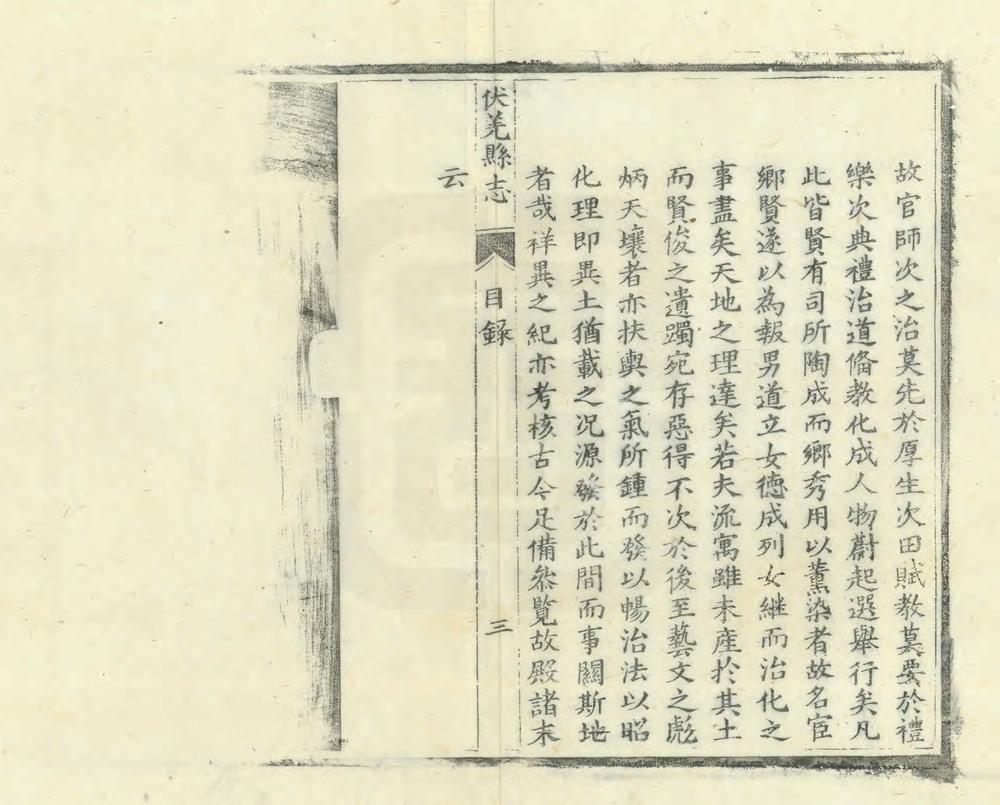 故官師次之治莫先於厚生次田賦教莫要於禮
樂次典禮治道備教化成人物蔚起選舉行矣凡
此皆賢有司所陶成而鄉秀用以薰染者故名宦
鄉賢遂以為報男道立女德成列女継而治化之
事盡矣天地之理達矣若夫流寓雖未產扵其土
而賢俊之遺躅宛存惡得不次扵後至藝文之彪
炳天壤者亦扶輿之氣所鍾而發以暢治法以昭
化理即異土猶載之况源發於此間而事關斯地
者哉祥異之紀亦考核古今足備叅覽故殿諸末
云
伏羌縣志
目錄
三